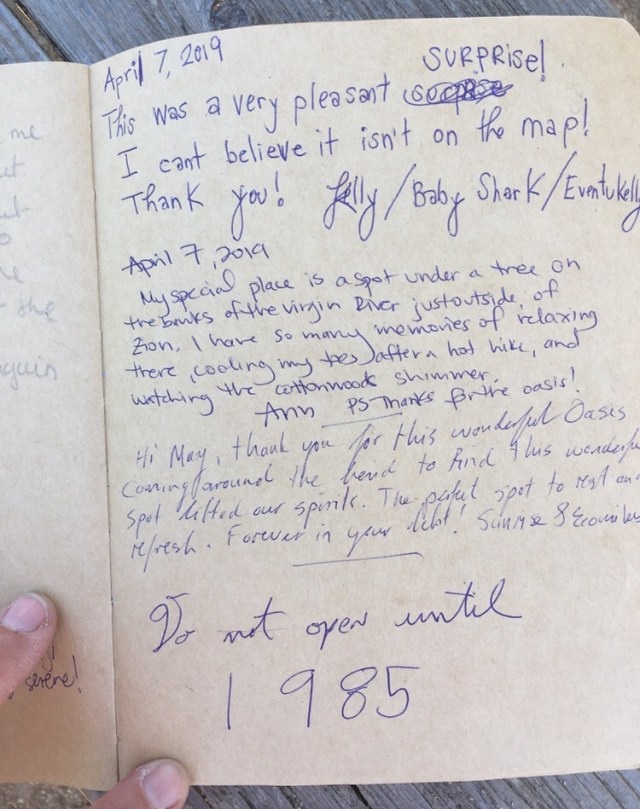 me
the
again
serene!
April 7, 2019
SURPRISE!
This was a very pleasant surprise
I cant believe it isn't on the map!
Thank you! Jelly/Baby Shark/Eventukelly
April 7, 2019
My special place is a spot under a tree on
the banks of the virgin River just outside of
Zion. I have so many memories of relaxing
there, cooling my toes after a hot hike, and
watching the cottonwoods shimmer.
Ann PS Thanks for the oasis!
Hi May, thank you for this wonderful Oasis
Coming around the bend to find this wonderfu
spot lifted our spirits. The perfect spot to rest an
refresh. Forever in your debt! Sunrise &
Do not open until
1985